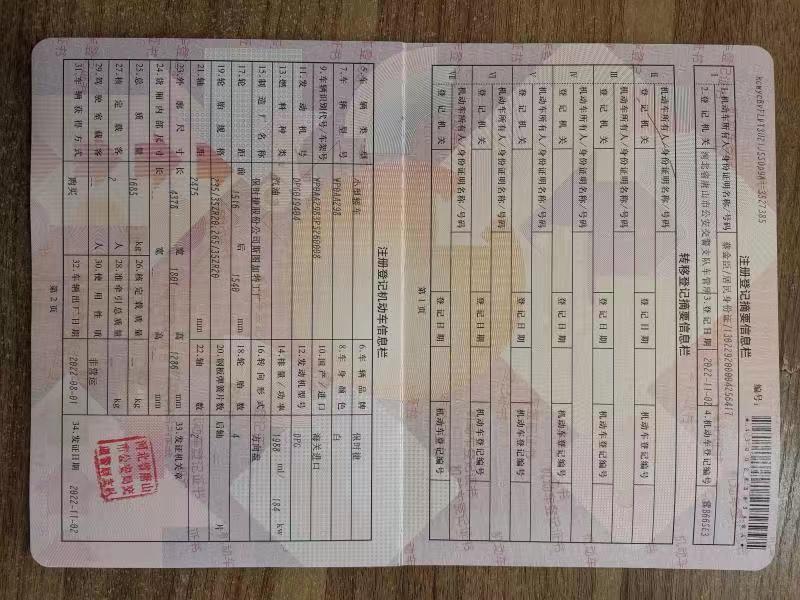 编号:
注册登记摘要信息栏
Ⅰ
1.机动车所有人/身份证明名称/号码 蔡金臣/居民身份证/130229200004256417
2.登记机关 河北省唐山市公安交警支队车管所 3.登记日期 2022-11-02 4.机动车登记编号 冀B66SE3
转移登记摘要信息栏
Ⅱ
机动车所有人/身份证明名称/号码
登记机关 登记日期 机动车登记编号
Ⅲ
机动车所有人/身份证明名称/号码
登记机关 登记日期 机动车登记编号
Ⅳ
机动车所有人/身份证明名称/号码
登记机关 登记日期 机动车登记编号
Ⅴ
机动车所有人/身份证明名称/号码
登记机关 登记日期 机动车登记编号
Ⅵ
机动车所有人/身份证明名称/号码
登记机关 登记日期 机动车登记编号
Ⅶ
机动车所有人/身份证明名称/号码
登记机关 登记日期 机动车登记编号
第1页
注册登记机动车信息栏
5.车辆类型 小型轿车 6.车辆品牌 保时捷
7.车辆型号 WP0AA298 8.车身颜色 白
9.车辆识别代号/车架号 WP0AA2983PS260098 10.国产/进口 海关进口
11.发动机号 DPG019404 12.发动机型号 DPG
13.燃料种类 汽油 14.排量/功率 1988 ml/ 184 kw
15.制造厂名称 保时捷股份公司斯图加特工厂 16.转向形式 方向盘
17.轮距 前 1516 后 1540 mm 18.轮胎数 4
19.轮胎规格 235/35ZR20,265/35ZR20 20.钢板弹簧片数 后轴 片
21.轴距 2475 mm 22.轴数 2
23.外廓尺寸 长 4379 宽 1801 高 1286 mm 33.发证机关章
24.货厢内部尺寸 长 宽 高 mm
25.总质量 1685 kg 26.核定载质量 kg
27.核定载客 2 人 28.准牵引总质量 kg
29.驾驶室载客 人 30.使用性质 非营运
31.车辆获得方式 购买 32.车辆出厂日期 2022-08-01 34.发证日期 2022-11-02
河北省唐山
市公安局交
第2页